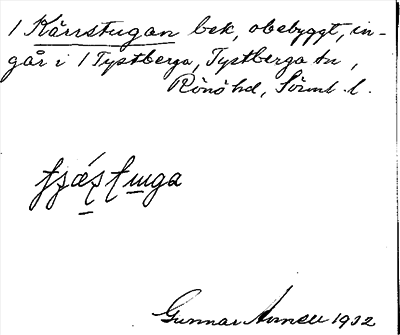 1 Kärrstugan bek, obebyggt, in-
går i 1 Tystberga, Tystberga sn,
Rönö hd, Sörml. l.
Gunnar 1932